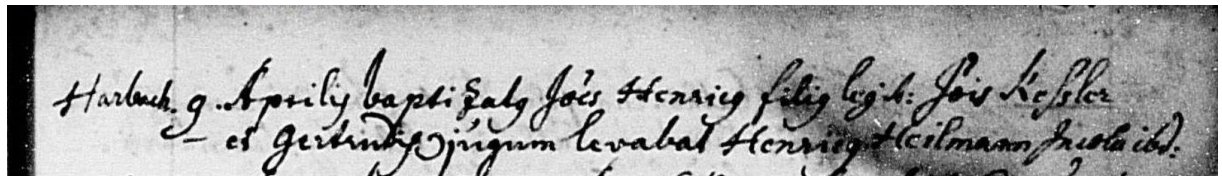 Harbach. 9. Aprilis baptizatg Jões Henricg filig legit: Jõis Keßler
et Gertrudis Cjugum levabat Henricg Heilmann Incola ibd: